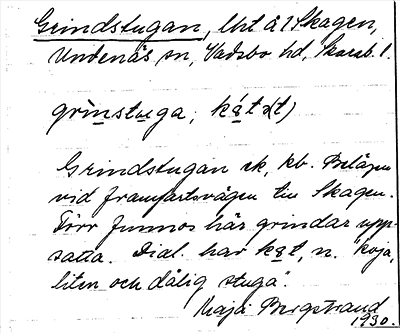 Grindstugan, lht å 1 Skagen,
Undenäs sn, Vadsbo hd, Skarab. l.
grinstuga; kåtæt)
Grindstugan ek, kb. Belägen
vid framfartsvägen till Skagen.
Förr funnos här grindar upp-
satta. Dial. har kåt, n. "koja,
liten och dålig stuga".
Maja Bergstrand
1930.